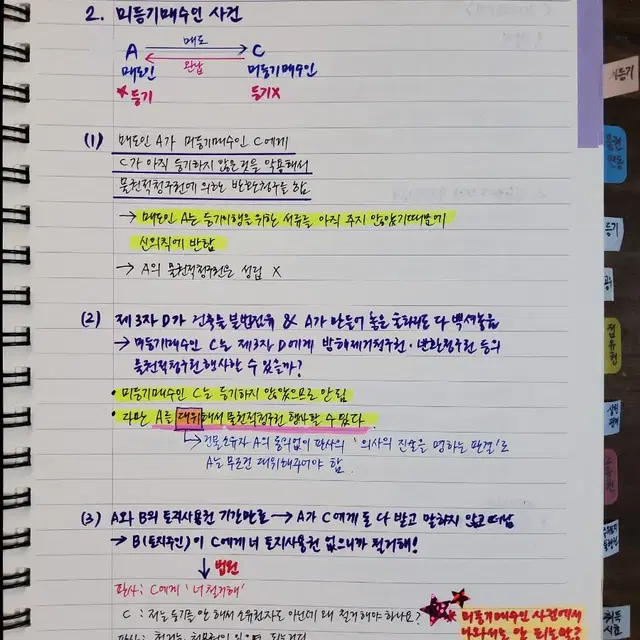 2. 미등기매수인 사건
매도
A C
완납
매도인 미등기매수인
★등기 등기X
(1) 매도인 A가 미등기매수인 C에게
C가 아직 등기하지 않은것을 악용해서
물권적청구권에 의한 반환청구를 함
→ 매도인 A는 등기이행을 위한 서류를 아직 주지 않았기때문에
신의칙에 반함
→ A의 물권적청구권은 성립 X
(2) 제3자 D가 건축물 불법점유 & A가 만들어 놓은 다 뺏어놓음
→ 미등기매수인 C는 제3자 D에게 방해제거청구권·반환청구권 등의
물권적청구권 행사할 수 있을까?
• 미등기매수인 C는 등기하지 않았으므로 안됨
• 다만 A를 대위해서 물권적청구권 행사할 수 있다.
→ 건물소유자 A의 동의없이 판사의 '의사의 진술을 명하는 판결'로
A는 무조건 대위해주어야 함
(3) A와 B의 토지사용권 기간만료 → A가 C에게 돈 다 받고 말하지 않고 떠남
→ B(토지주인)이 C에게 너 토지사용권 없으니까 철거해!
↓ 법원
판사: C에게 '너 철거해'
C : 저는 등기를 안 해서 소유권자도 아닌데 왜 철거해야 하나요?
미등기매수인 사건에서
물권
변동
등기
점유권
소유권
취득
시효